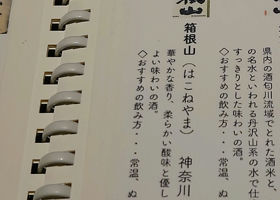 県内の酒匂川流域でとれた酒米と、
の名水といわれる丹沢山系の水で仕
すっきりとした味わいの酒。
◇おすすめの飲み方・・・常温、ぬ
箱根山
箱根山（はこねやま） 神奈川
華やかな香り、柔らかい酸味と優し
よい味わいの酒。
◇おすすめの飲み方・・・常温、ぬ